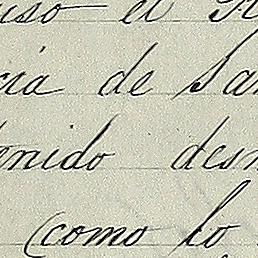 uso el
cia de San
enido des
(como lo